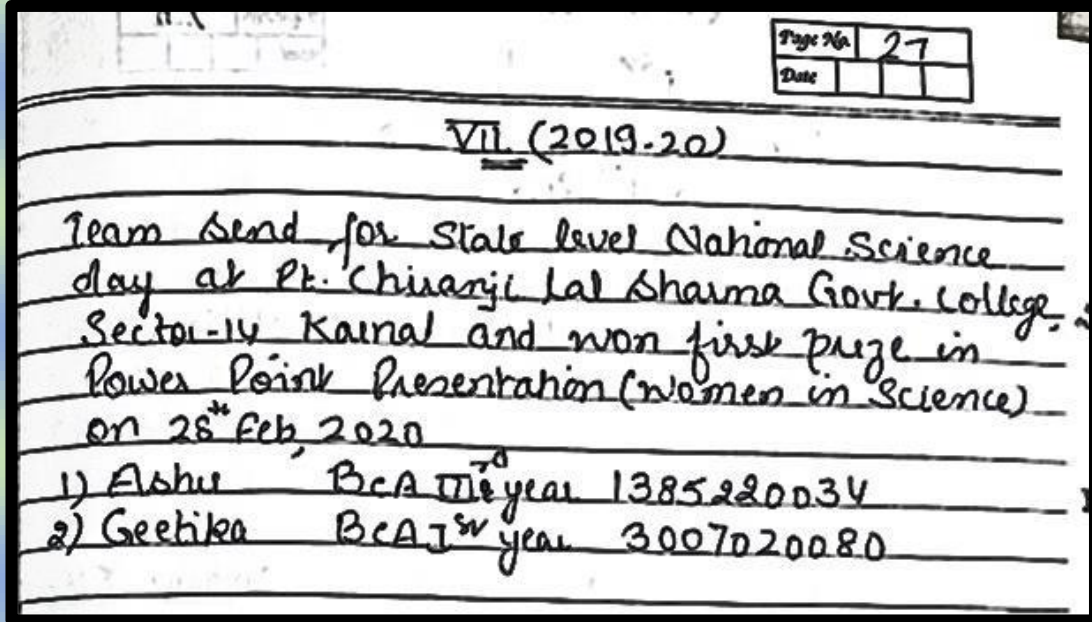 Page No. 27
Date
VII. (2019-20)
Team send for State level National Science
day at Pt. Chiranji Lal Sharma Govt. College,
Sector-14 Karnal and won first prize in
Power Point Presentation (Women in Science)
on 28th Feb, 2020
1) Ashu BCA IIIrd year 1385220034
2) Geetika BCA Ist year 3007020080